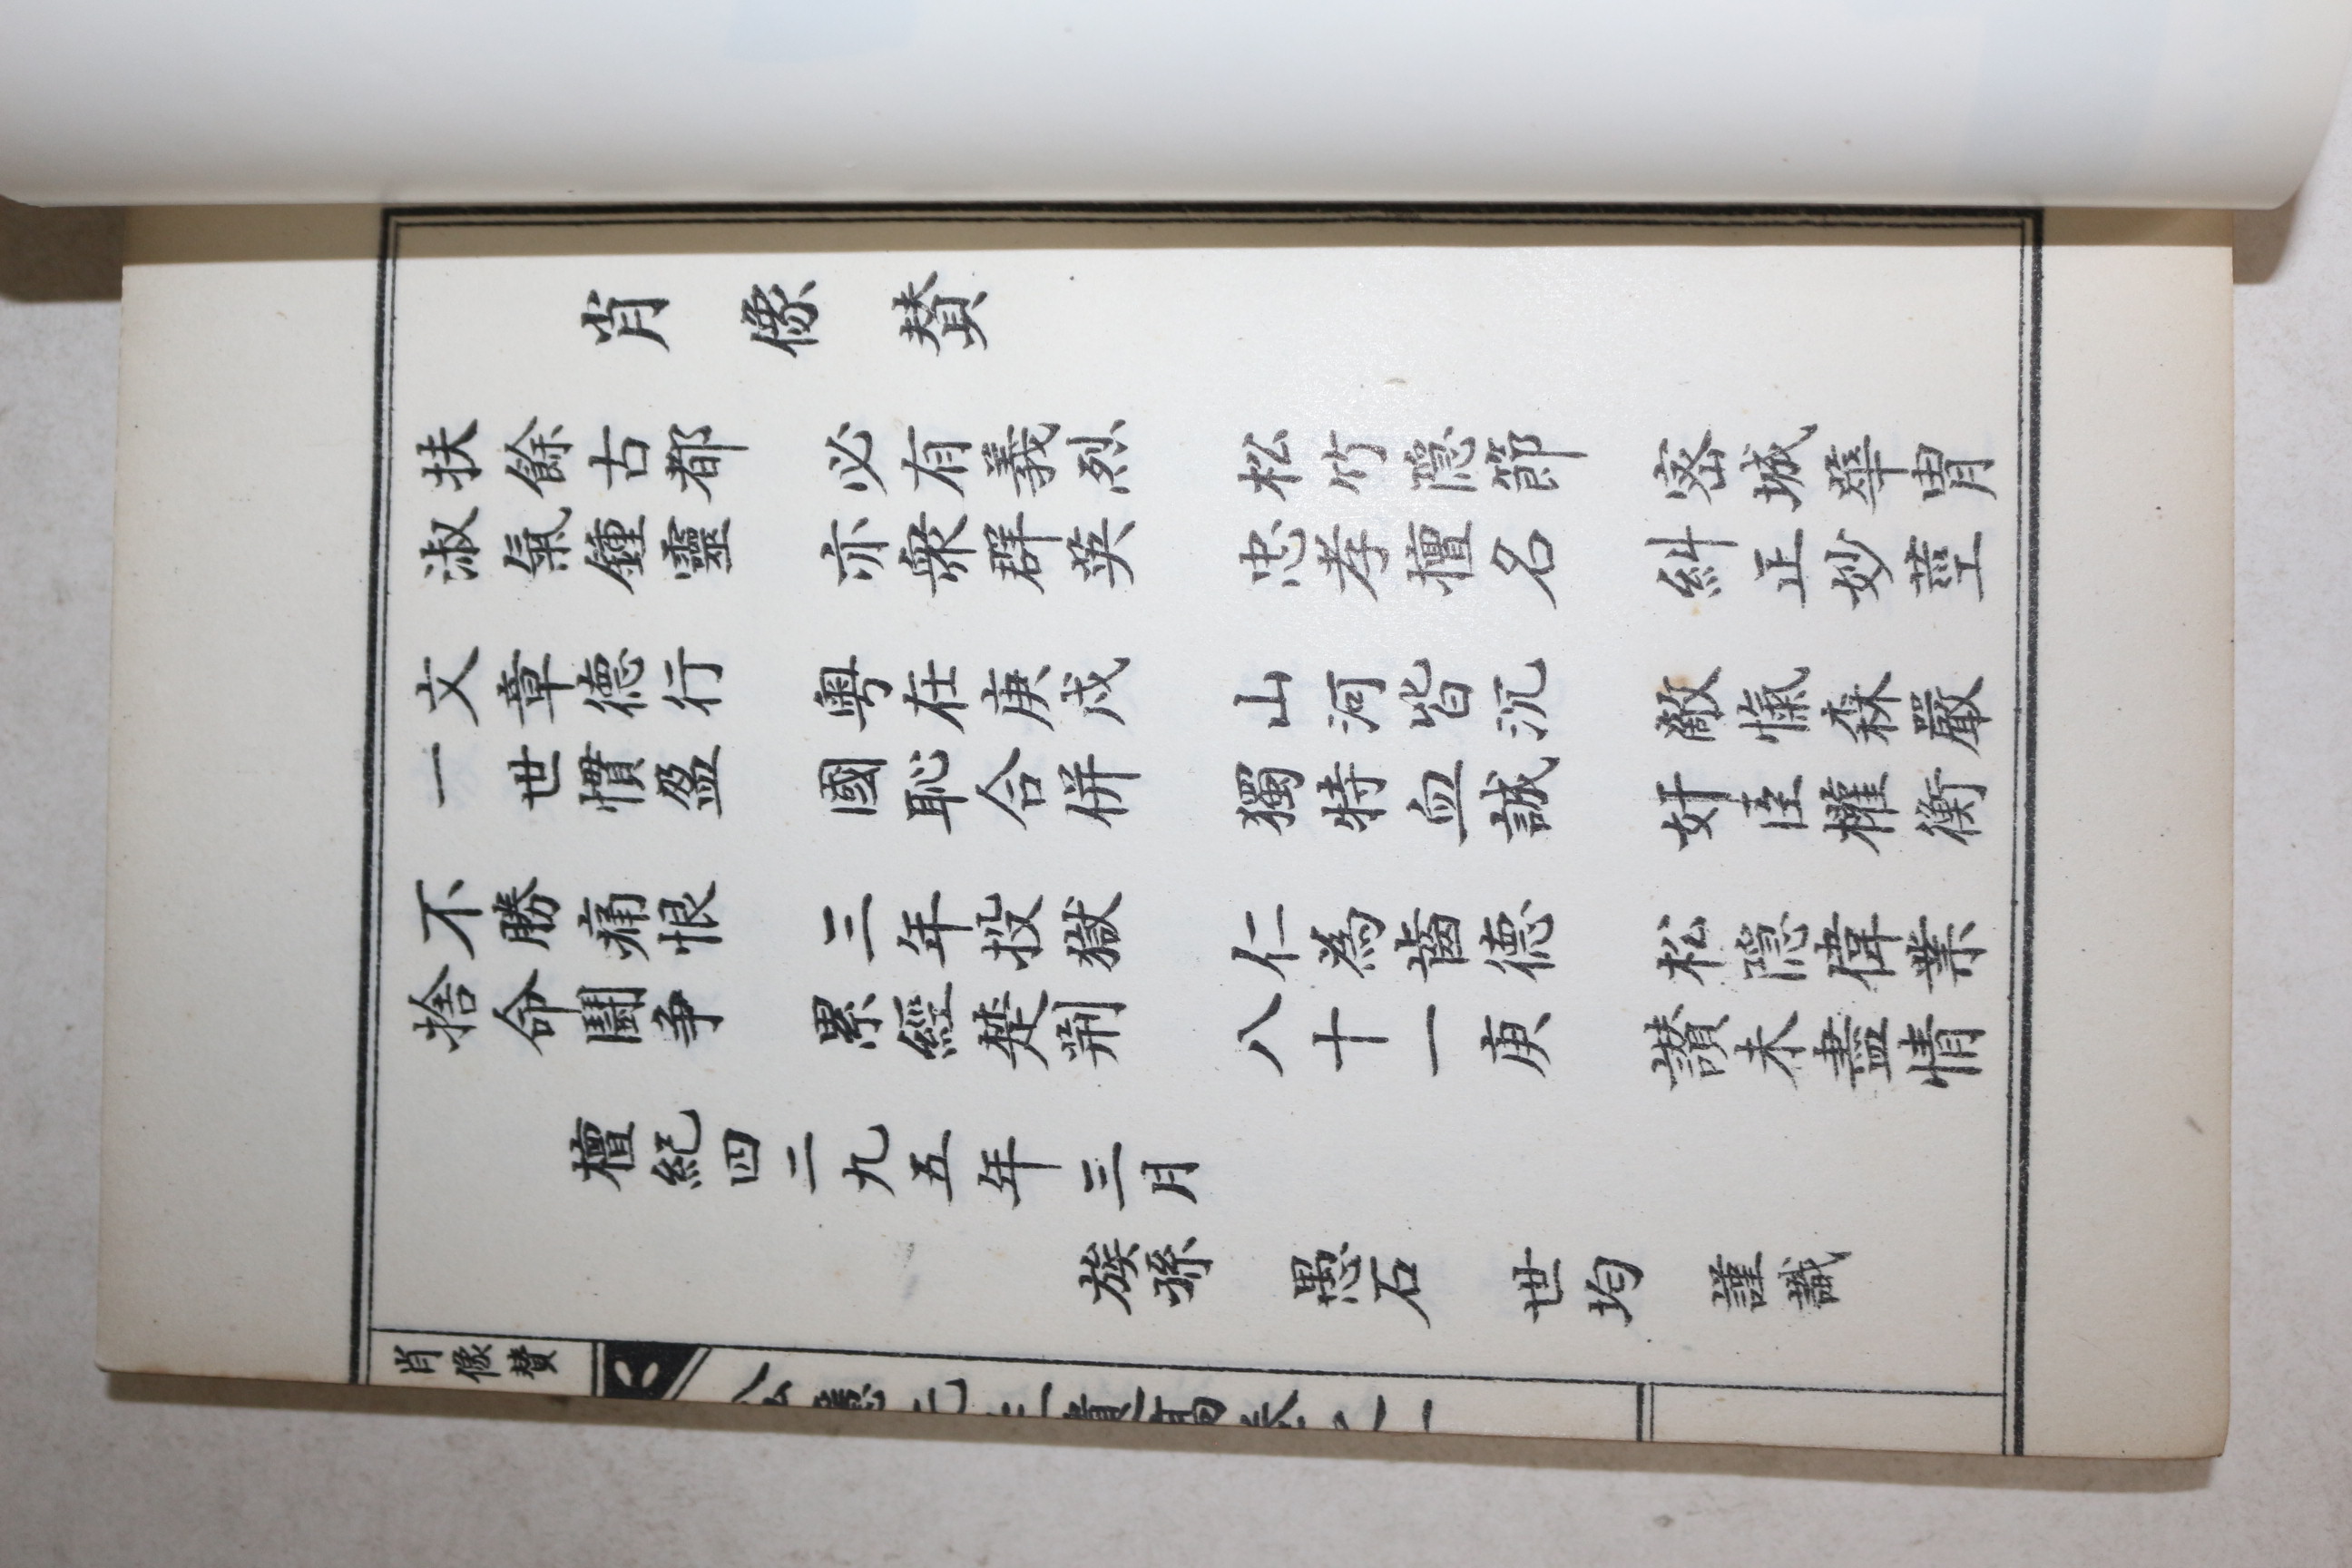 肖像贊
扶餘古都 必有義烈 松竹隱節 密城華胄
淑氣鍾靈 亦衆群英 忠孝擅名 糾正妙莖
文章德行 粤在庚戌 山河皆沉 敵愾森嚴
一世慣盈 國恥合併 獨特血誠 奸臣權衡
不勝痛恨 三年投獄 仁為齒德 松隱偉業
捨命鬪争 累經楚荆 八十一庚 讃未盡情
檀紀四二九五年三月
族孫 愚石 世均 謹識
肖像贊
松隱先生遺稿卷之一